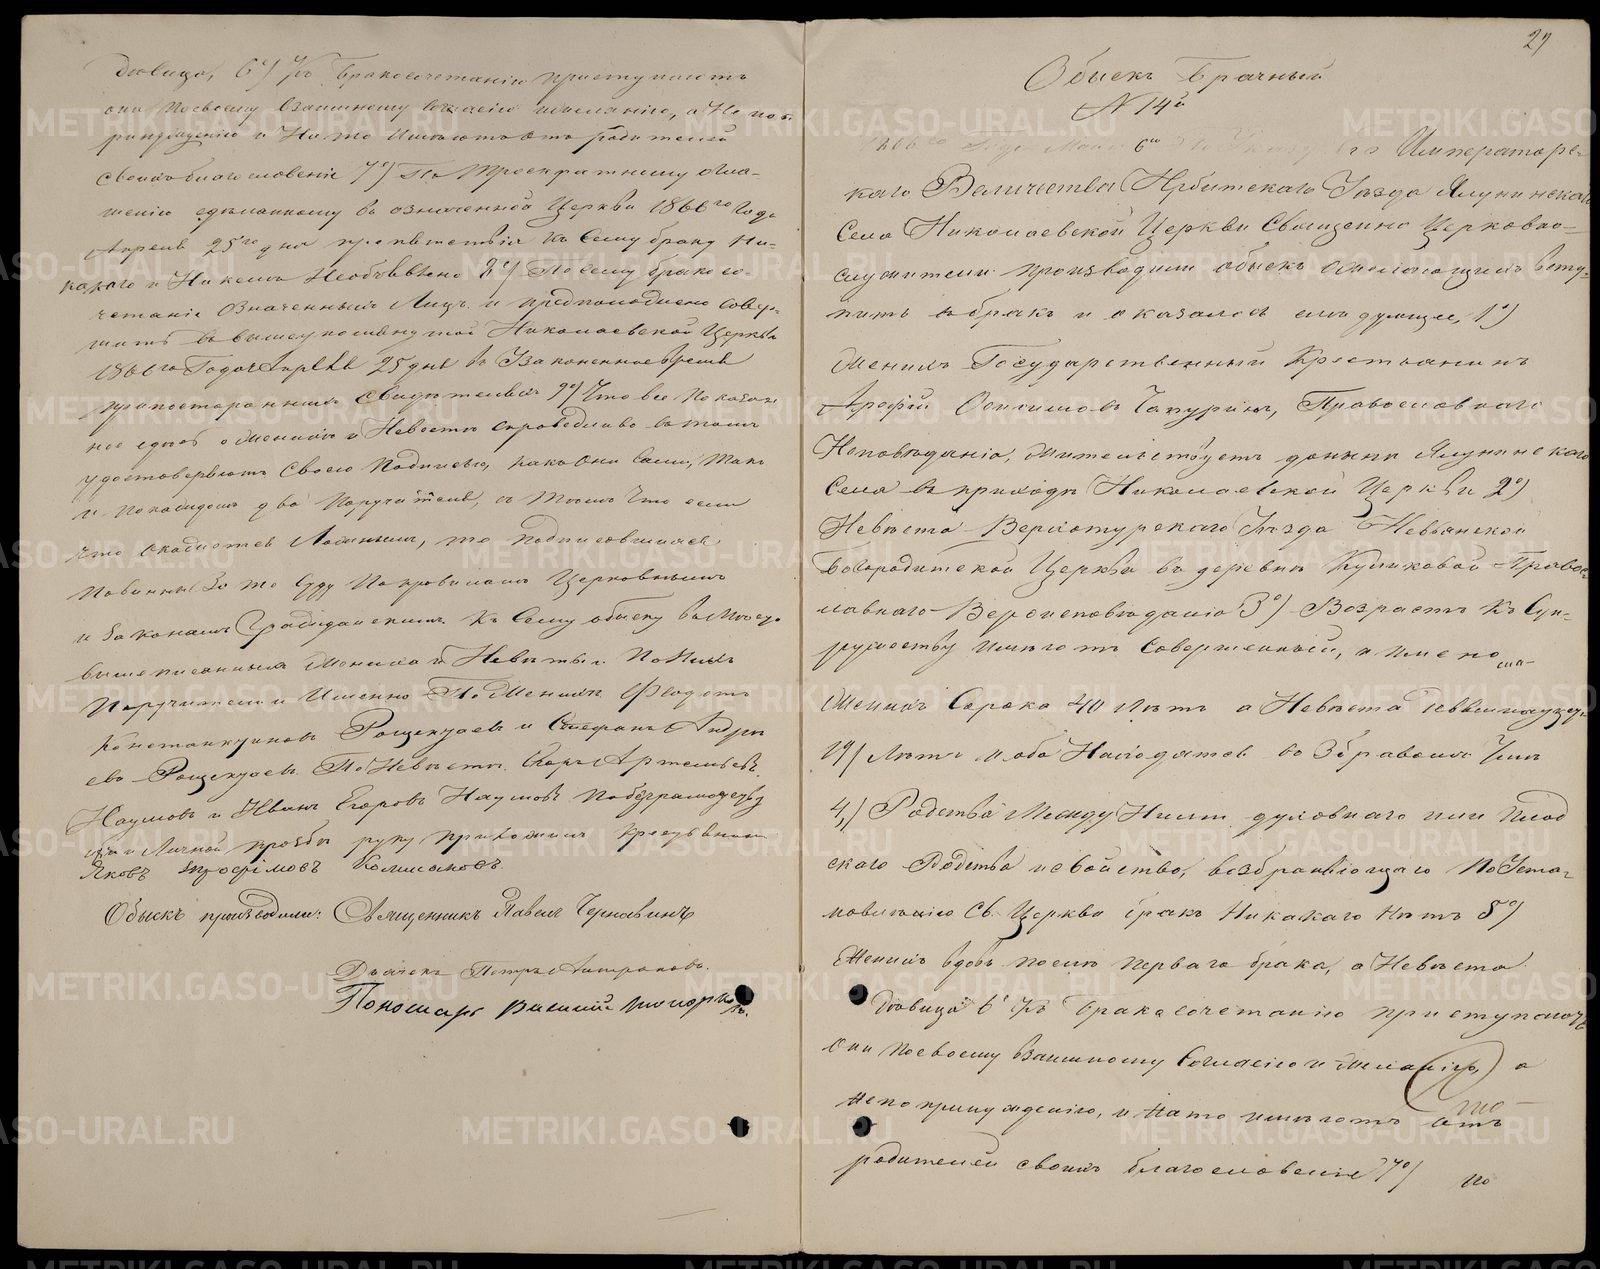 Дѣвица, 6е) Къ Бракосочетанію приступаютъ
они по своему взаимному согласію и желанію, а не по
принужденію и На то имѣютъ отъ родителей
своихъ благословеніе 7е) По Троекратному огла-
шенію сдѣланному въ означенной Церкви 1866го Года
Апрѣля 25го дня препятствія къ Сему браку Ни-
какого и Никемъ Необъявлено 8е) По сему бракосо-
четаніе Означенныхъ Лицъ и предположено совер-
шить въ вышеупомянутой Николаевской Церкви
1866го Года Апрѣля 25 дня въ Узаконенное время
при постороннихъ свидѣтеляхъ 9е) Что все показан-
ное здѣсь о женихѣ и Невѣстѣ справедливо въ томъ
удостовѣряютъ своею подписью, какъ они Сами, такъ
и по каждомъ два Поручителя, съ тѣмъ что если
что окажется Ложнымъ, то подписавшіеся
повинны за то Суду По правиламъ Церковнымъ
и Законамъ Гражданскимъ. Къ Сему обыску
вышеписанныя Женихъ и Невѣста По Нихъ
Поручители Именно По Женихѣ Федотъ
Константиновъ Рощектаевъ и Стефанъ Андре
евъ Рощектаевъ По Невѣстѣ Артемьевъ
Наумовъ и Иванъ Егоровъ Наумовъ по безграмотству
ихъ и Личной прозбѣ руку приложилъ Крестьянинъ
Яковъ Трофимовъ
Обыскъ производили: Священникъ Павелъ Чернавинъ
Дьячекъ Петръ
Пономарь
29
Обыскъ Брачный
№ 14й
1866го Года Мая По Указу Его Императорс-
каго Величества Ирбитскаго Уѣзда Ялунинскаго
Села Николаевской Церкви Священно Церковно-
служители производили обыскъ о желающихъ всту-
пить в бракъ и оказалось слѣдующее, 1е)
Женихъ Государственный Крестьянинъ
Арефій Онисимовъ Чапуринъ, Православнаго
Исповѣданія, жительствуетъ Ялунинскаго
Села въ приходѣ Николаевской Церкви 2е)
Невѣста Верхотурскаго Уѣзда Невьянской
Богородитской Церкви въ деревнѣ Куликовой Правос-
лавнаго Вероисповѣданія 3е) Возрастъ къ Суп-
ружеству имѣютъ Совершенный, а имено
Женихъ Сорока 40 лѣтъ а Невѣста девятнадца-
19) Лѣтъ и оба Находятся въ Здравомъ Умѣ
4,) Родства Между Ними духовнаго или Плот
скаго Родства и свойства, возбраняющаго По Уста-
новленію Св. Церкви бракъ Никакаго Нѣтъ 5е)
Женихъ вдовъ послѣ перваго брака, а Невѣста
Дѣвица 6е Къ Бракасочетанію приступаютъ
они по своему взаимному Согласію и желанію, а
не по принужденію, и на то имѣютъ отъ
родителей своихъ благословеніе 7е) По